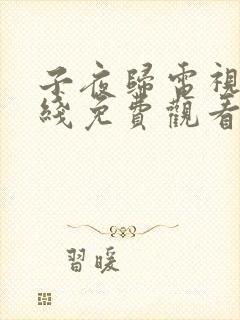 子夜歸電視
綫免費觀看
習暖